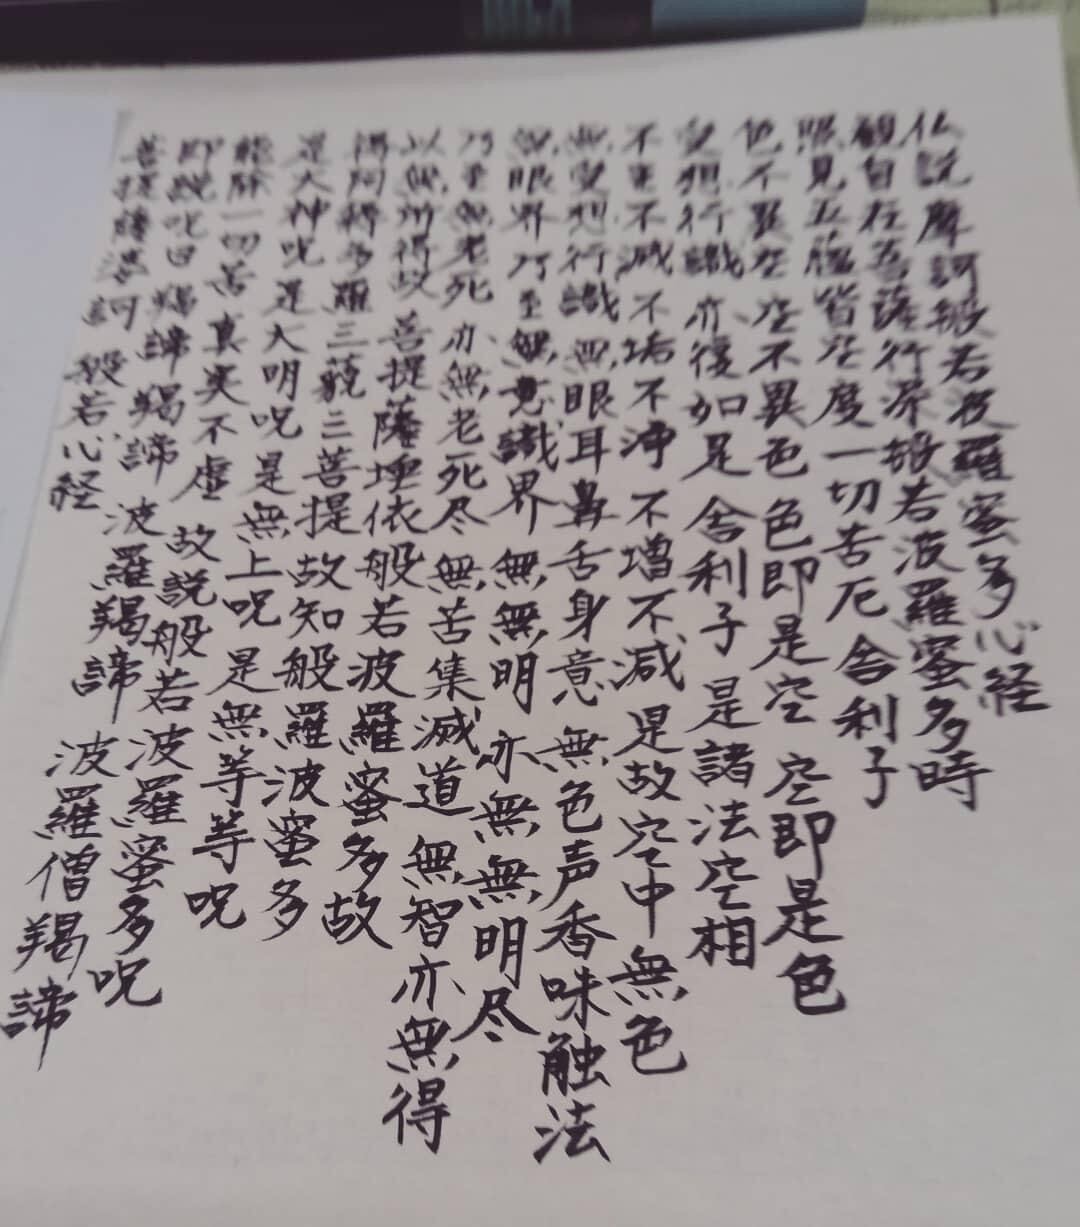 仏説摩訶般若波羅蜜多心経
観自在菩薩行深般若波羅蜜多時
照見五蘊皆空度一切苦厄舎利子
色不異空 空不異色 色即是空 空即是色
受想行識 亦復如是 舎利子 是諸法空相
不生不滅 不垢不浄 不増不減 是故空中無色
無受想行識 無眼耳鼻舌身意 無色声香味触法
無眼界 乃至無意識界 無無明 亦無無明尽
乃至無老死 亦無老死尽 無苦集滅道 無智亦無得
以無所得故 菩提薩埵依般若波羅蜜多故
得阿耨多羅三藐三菩提 故知般羅波蜜多
是大神呪 是大明呪 是無上呪 是無等等呪
能除一切苦 真実不虚 故説般若波羅蜜多呪
即説呪曰 羯諦 羯諦 波羅羯諦 波羅僧羯諦
菩提薩婆訶 般若心経